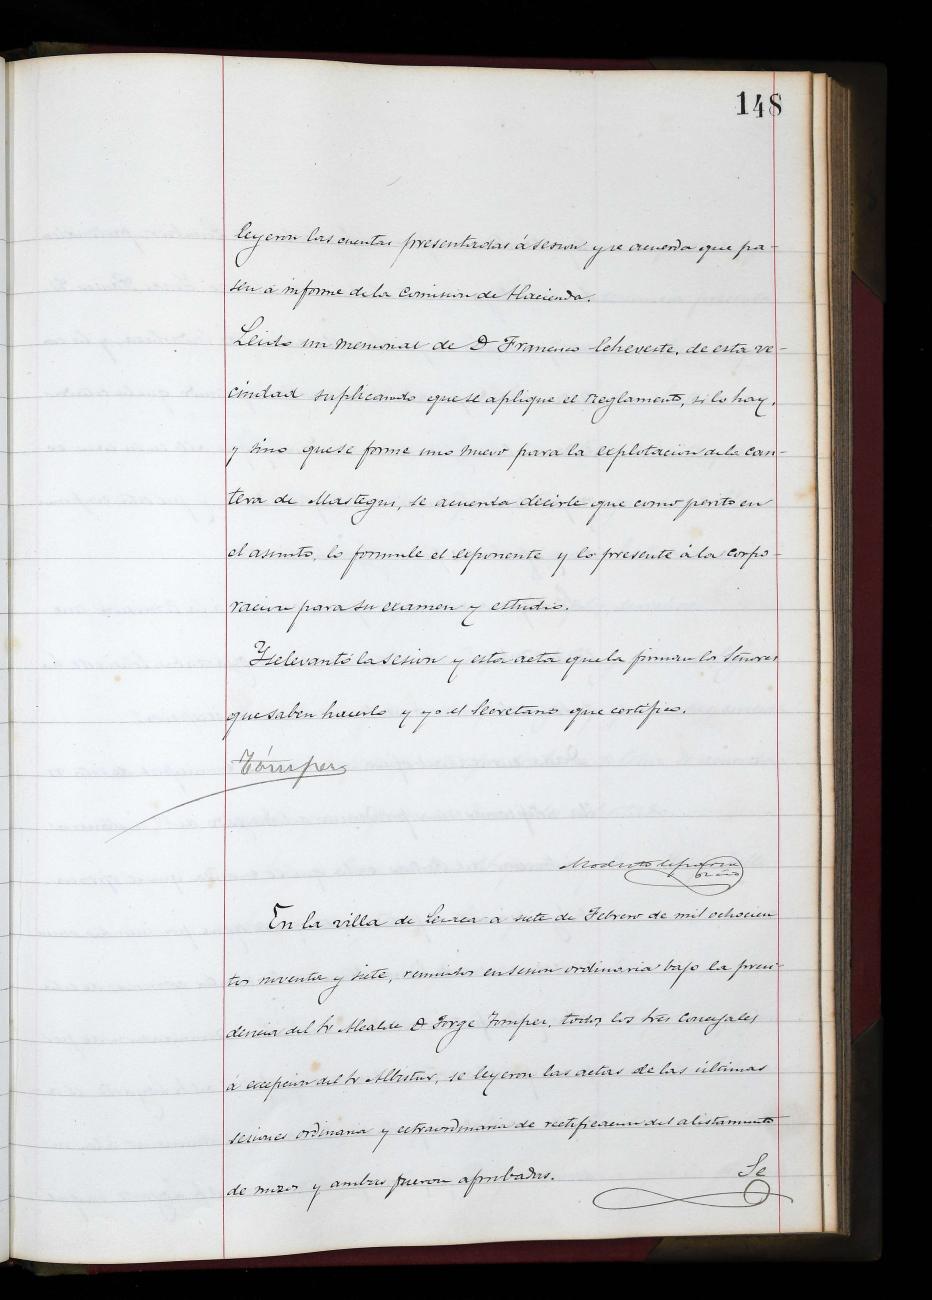 148
leyeron las cuentas presentadas á sesion y se acuerda que pa-
sen a informe de la Comision de Hacienda.
Leido un memorial de D Francisco Echeveste, de esta ve-
cindad suplicando que se aplique el reglamento, si lo hay,
y sino que se forme uno nuevo para la explotacion de la can-
tera de Mastegui, se acuerda decirle que como perito en
el asunto, lo formule el esponente y lo presente á la corpo-
racion para su examen y estudio.
Y se levantó la sesion y esta acta que la firman los Señores
que saben hacerlo y yo el Secretario que certifico.
Tómper
Modesto
En la villa de Lezo a siete de Febrero de mil ochocien
tos noventa y siete, reunidos en sesion ordinaria bajo la presi-
dencia del Sr Alcalde D Jorge Tomper, todos los Sres Concejales
á excepcion del Sr Albistur, se leyeron las actas de las últimas
sesiones ordinaria y extraordinaria de rectificacion del alistamiento
de mozos y ambas fueron aprobadas. Se